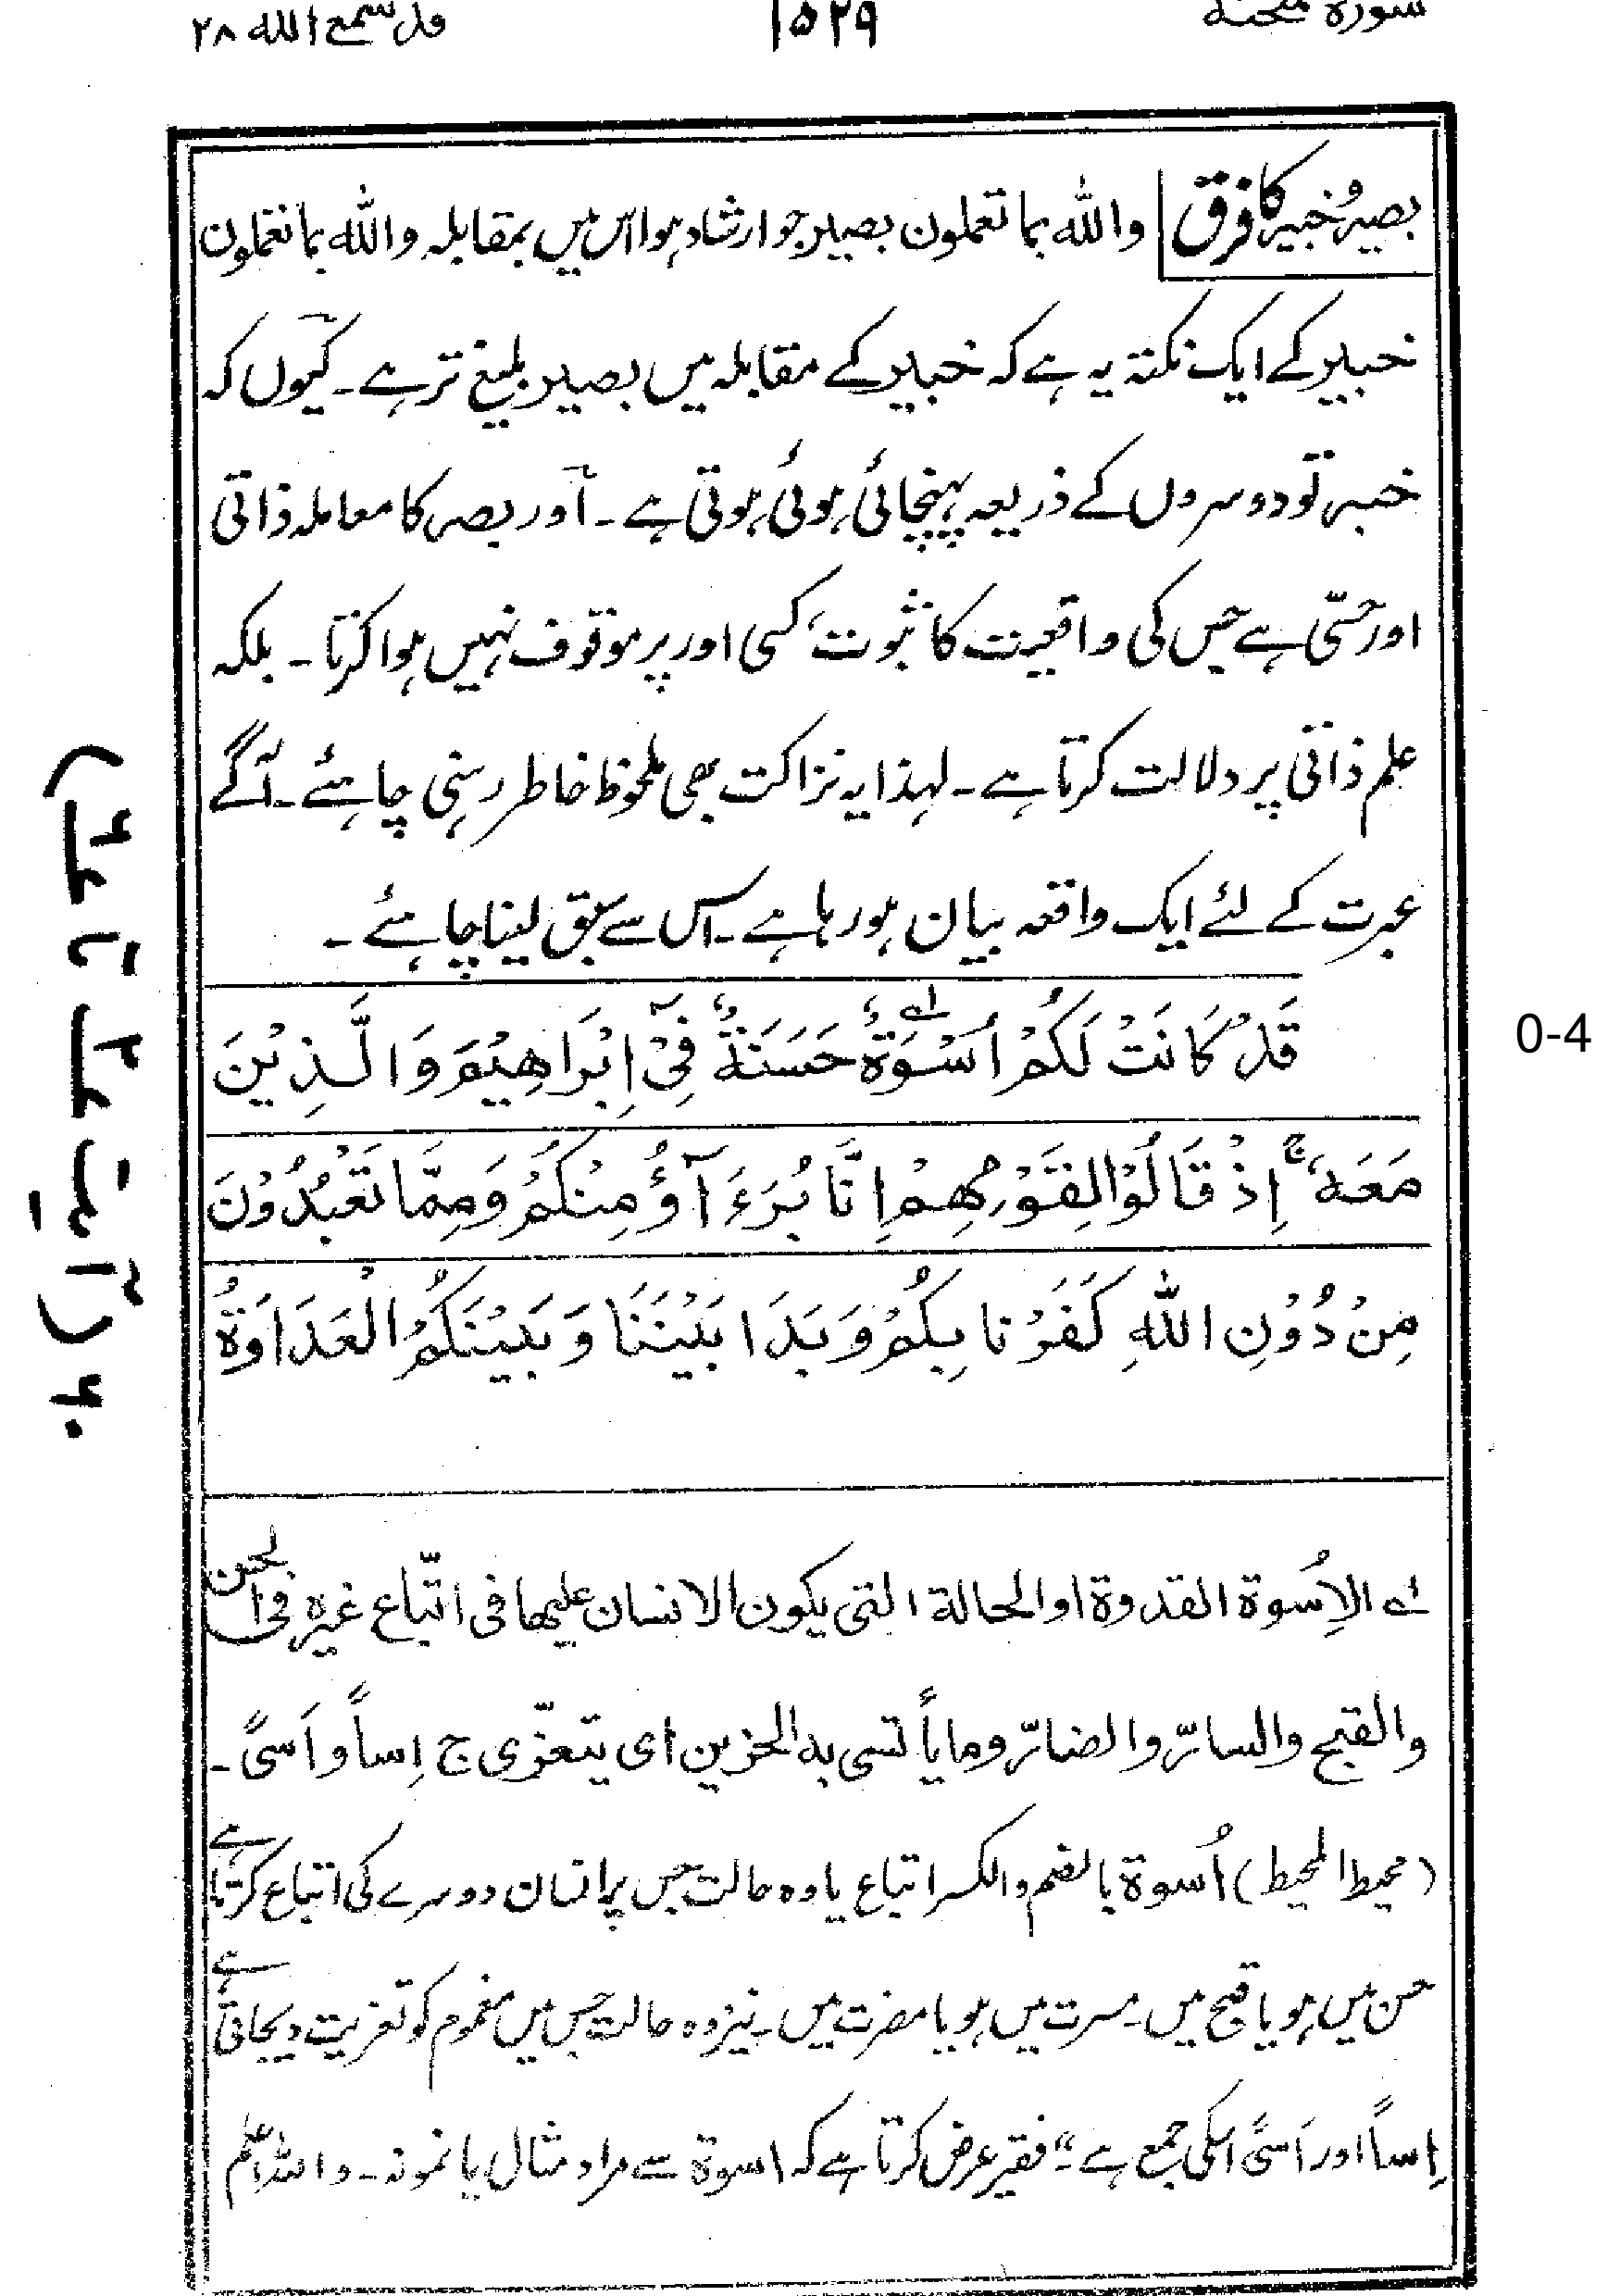 سورۃ ممتحنہ ۱۵۲۹ قد سمع اللہ ۲۸
بصیر و خبیر کا فرق واللہ بما تعملون بصیر جو ارشاد ہوا اس میں بمقابلہ واللہ بما تعملون
خبیر کے ایک نکتہ یہ ہے کہ خبیر کے مقابلہ میں بصیر بلیغ تر ہے ۔ کیوں کہ
خبر تو دوسروں کے ذریعہ پہنچائی ہوئی ہوتی ہے ۔ اور بصر کا معاملہ ذاتی
اور حسّی ہے جس کی واقعیت کا ثبوت، کسی اور پر موقوف نہیں ہوا کرتا ۔ بلکہ
علم ذاتی پر دلالت کرتا ہے ۔ لہذا یہ نزاکت بھی ملحوظ خاطر رہنی چاہئے ۔ آگے
عبرت کے لئے ایک واقعہ بیان ہو رہا ہے ۔ اس سے سبق لینا چاہئے ۔
قَدْ كَانَتْ لَكُمْ اُسْوَةٌ حَسَنَةٌ فِیْۤ اِبْرَاهِیْمَ وَالَّذِیْنَ
مَعَهٗ ۚ اِذْ قَالُوْا لِقَوْمِهِمْ اِنَّا بُرَءَآؤُ مِنْكُمْ وَمِمَّا تَعْبُدُوْنَ
مِنْ دُوْنِ اللهِ كَفَرْنَا بِكُمْ وَبَدَا بَیْنَنَا وَبَیْنَكُمُ الْعَدَاوَةُ
لے الاِسُوة القدوة او الحالة التی یکون الانسان علیها فی اتّباع غیرہ فی الحسن
والقبح والسارّ والضارّ وما یأتسی به الحزین ای یتعزّی ج اِساً و اَسیً ۔
(محیط المحیط) اُسوة بالضم والکسر اتباع یا وہ حالت جس پر انسان دوسرے کی اتباع کرتا ہے
حسن میں ہو یا قبح میں ۔ مسرت میں ہو یا مضرت میں ۔ نیز وہ حالت جس میں مغموم کو تعزیت دیجاتی ہے
اِساً اور اَسیً اسکی جمع ہے ۔“ فقیر عرض کرتا ہے کہ اسوة سے مراد مثال یا نمونہ ۔ واللہ اعلم
۶۰ (آیت ۴ تا ۶)
0-4